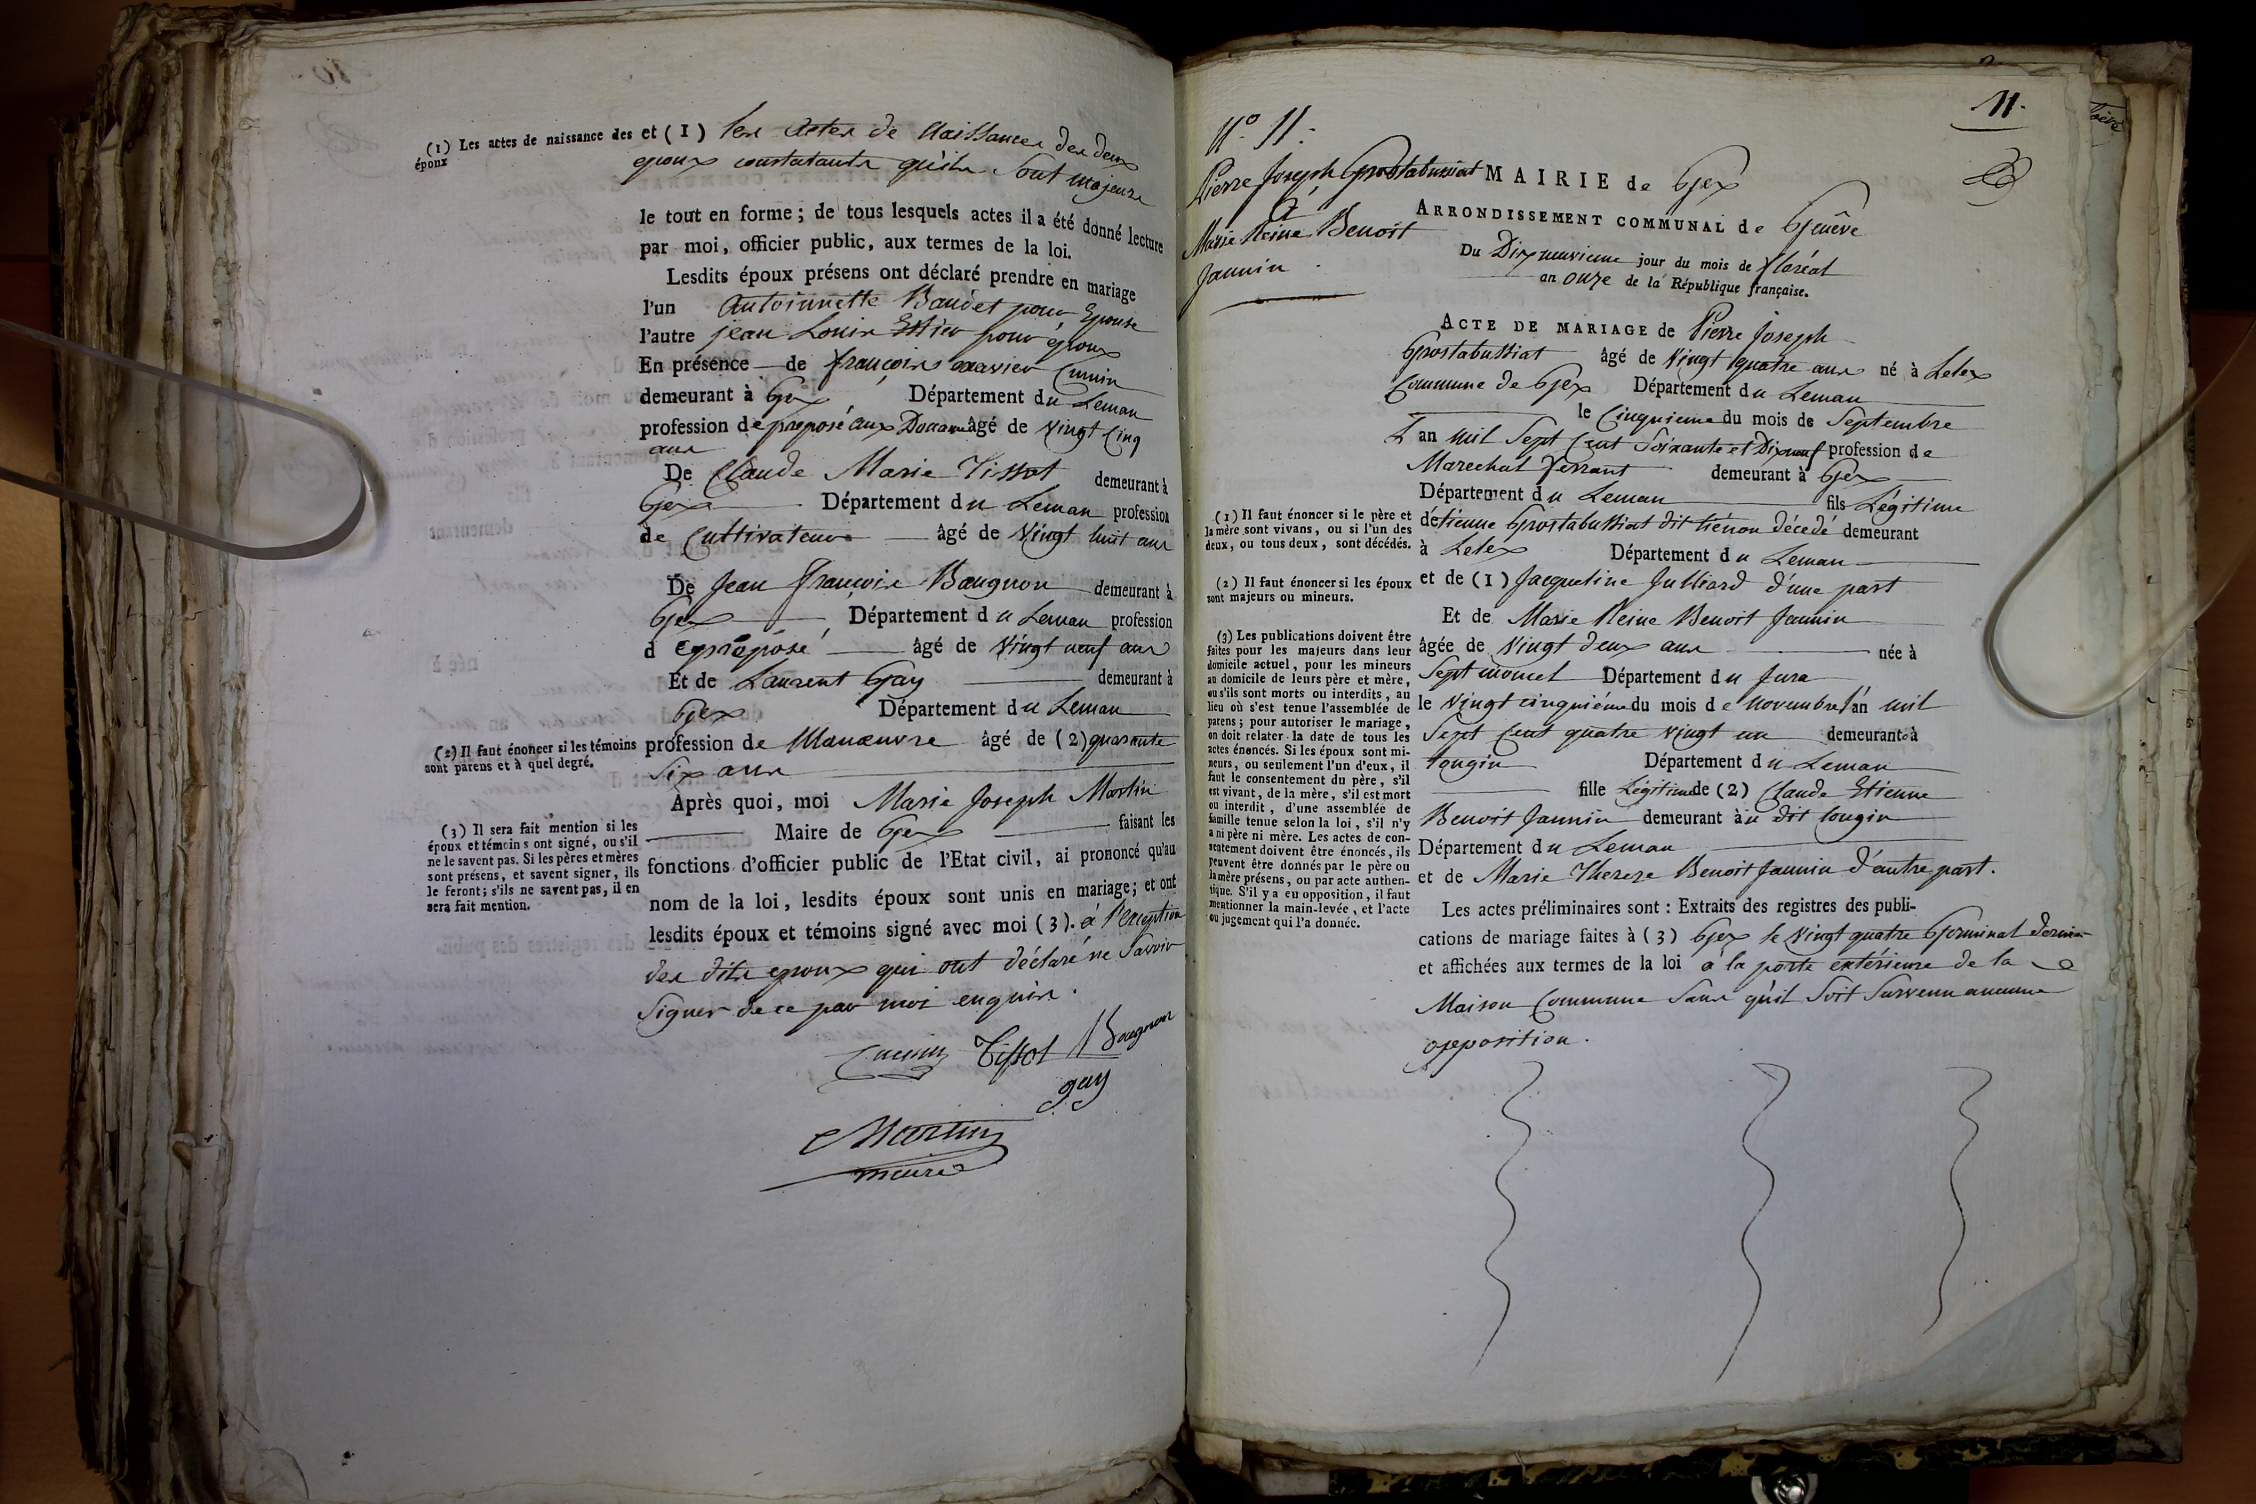 (1) Les actes de naissance des
époux
et (1) les actes de Naissances des deux
epoux constatants qu'ils sont majeurs
le tout en forme; de tous lesquels actes il a été donné lecture
par moi, officier public, aux termes de la loi.
Lesdits époux présens ont déclaré prendre en mariage
l'un Antoinette Baudet pour Epouse
l'autre jean Louis pour époux
En présence de françois xavier Cumin
demeurant à Gex Département du Leman
profession de préposé aux Douanes âgé de vingt cinq
ans
De Claude Marie Tissot demeurant à
Gex Département du Leman profession
de Cultivateur âgé de Vingt huit ans
De Jean françois Baugnon demeurant à
Gex Département du Leman profession
d Epréposé âgé de vingt neuf ans
Et de Laurent Gay demeurant à
Gex Département du Leman
(2) Il faut énoncer si les témoins
sont parens et à quel degré.
profession de Manœuvre âgé de (2) quarante
six ans
Après quoi, moi Marie Joseph Martin
Maire de Gex faisant les
(3) Il sera fait mention si les
époux et témoins ont signé, ou s'il
ne le savent pas. Si les pères et mères
sont présens, et savent signer, ils
le feront; s'ils ne savent pas, il en
sera fait mention.
fonctions d'officier public de l'Etat civil, ai prononcé qu'au
nom de la loi, lesdits époux sont unis en mariage; et ont
lesdits époux et témoins signé avec moi (3). à l'exception
des dits epoux qui ont déclaré ne savoir
signer de ce par moi enquis.
Cumin Tissot Bougnon
gay
Martin
maire
11.
N.° 11.
Pierre Joseph Grostabussiat
&
Marie Reine Benoit
Jannin.
MAIRIE de Gex
ARRONDISSEMENT COMMUNAL de Genêve
Du Dixneuvieme jour du mois de floréal
an onze de la République française.
ACTE DE MARIAGE de Pierre Joseph
Grostabussiat âgé de vingt quatre ans né à Lelex
Commune de Gex Département du Leman
le Cinquieme du mois de Septembre
L'an mil sept cent soixante et Dixneuf profession de
Marechal ferrant demeurant à Gex
Département du Leman fils Légitime
d'étienne Grostabussiat dit tiénon décedé demeurant
à Lelex Département du Leman
et de (1) Jacqueline Julliard d'une part
Et de Marie Reine Benoit Jannin
âgée de vingt deux ans née à
Septmoncel Département du Jura
le vingt cinquiéme du mois de novembre l'an mil
Sept cent quatre vingt un demeurant à
tougin Département du Leman
fille Légitime de (2) Claude Etienne
Benoit Jannin demeurant au dit tougin
Département du Leman
et de Marie Therese Benoit Jannin d'autre part.
Les actes préliminaires sont : Extraits des registres des publi-
cations de mariage faites à (3) Gex le vingt quatre Germinal dernier
et affichées aux termes de la loi à la porte extérieure de la
Maison Commune sans qu'il soit survenu aucune
opposition.
(1) Il faut énoncer si le père et
la mère sont vivans, ou si l'un des
deux, ou tous deux, sont décédés.
(2) Il faut énoncer si les époux
sont majeurs ou mineurs.
(3) Les publications doivent être
faites pour les majeurs dans leur
domicile actuel, pour les mineurs
au domicile de leurs père et mère,
ou s'ils sont morts ou interdits, au
lieu où s'est tenue l'assemblée de
parens; pour autoriser le mariage,
on doit relater la date de tous les
actes énoncés. Si les époux sont mi-
neurs, ou seulement l'un d'eux, il
faut le consentement du père, s'il
est vivant, de la mère, s'il est mort
ou interdit, d'une assemblée de
famille tenue selon la loi, s'il n'y
a ni père ni mère. Les actes de con-
sentement doivent être énoncés, ils
peuvent être donnés par le père ou
la mère présens, ou par acte authen-
tique. S'il y a eu opposition, il faut
mentionner la main-levée, et l'acte
ou jugement qui l'a donnée.